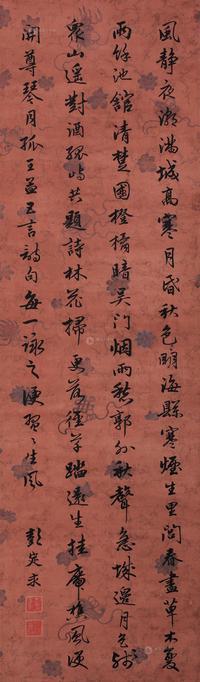 風靜夜潮滿城高寒月昏秋色明海縣寒煙生里閭春盡草木變
雨餘池館清楚國橙橘暗吳門烟雨愁郭外秋聲急城邊月色殘
眾山遙對酒孤嶼共題詩林花掃更落徑草踏還生挂席樵風便
開尊琴月孤王孟五言詩句每一詠之便習〻生風
彭定求